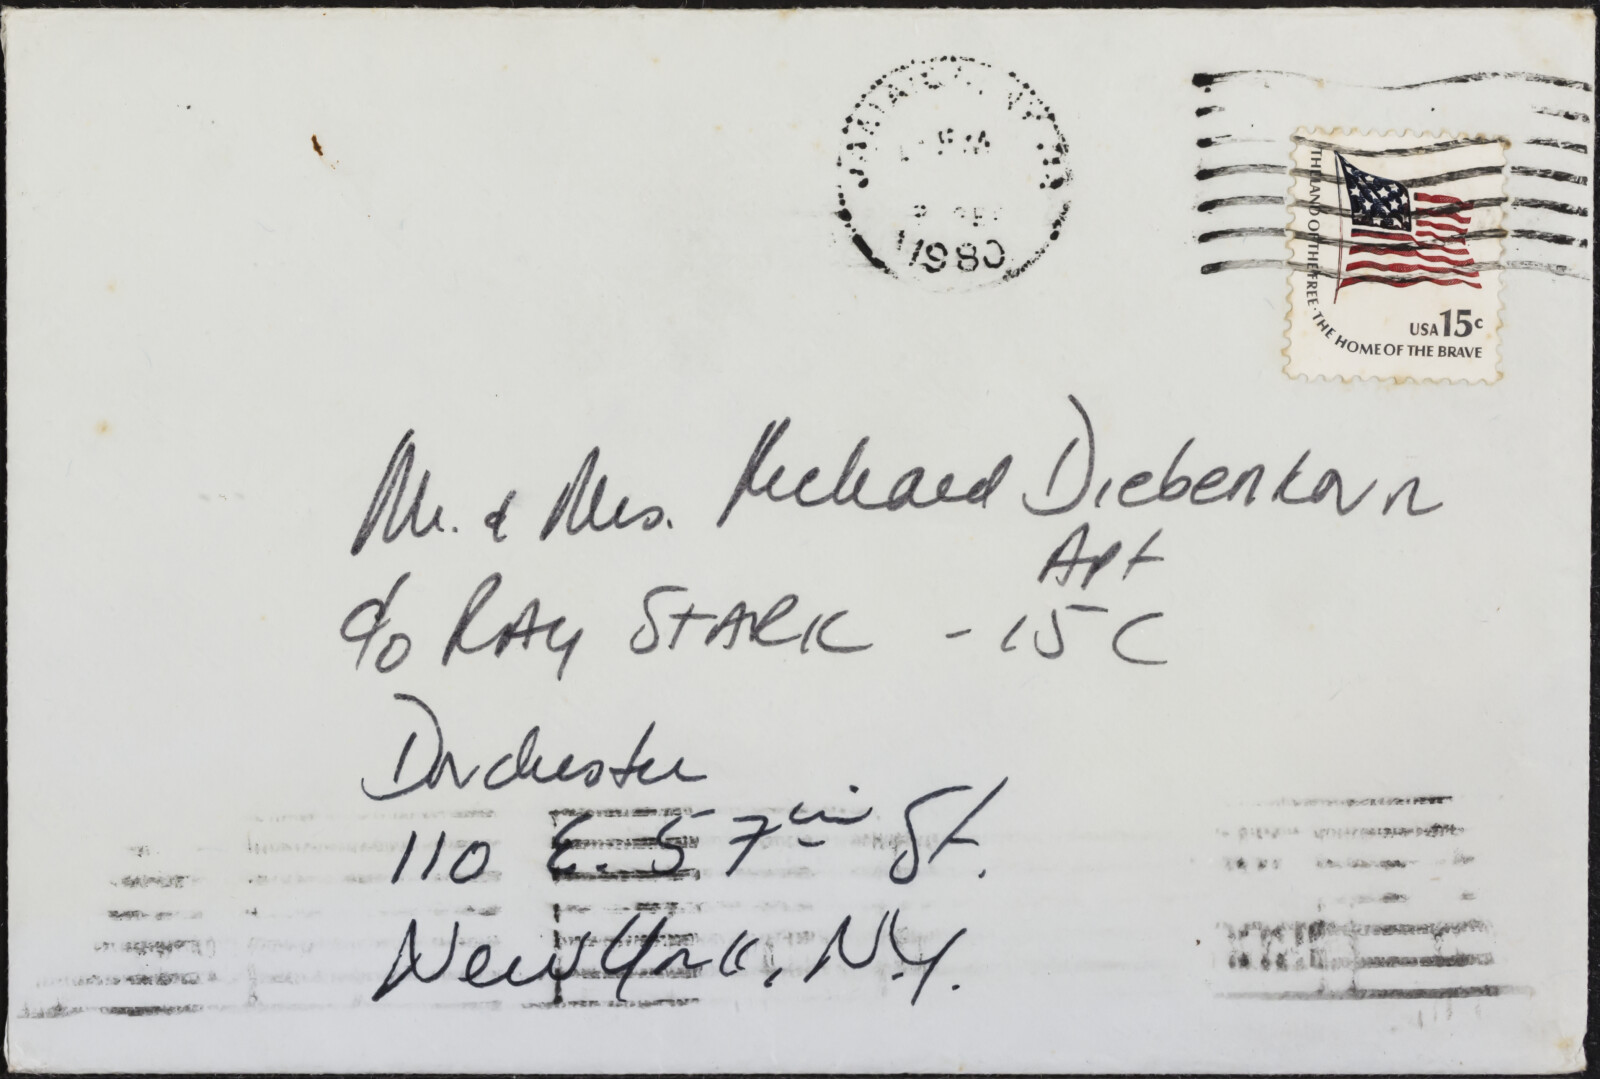 JAMAICA, NY
PM
1980
THE LAND OF THE FREE · THE HOME OF THE BRAVE
USA 15c
Mr. & Mrs. Richard Diebenkorn
Apt
c/o RAY STARK - 15C
Dorchester
110 E. 57th St.
New York, N.Y.